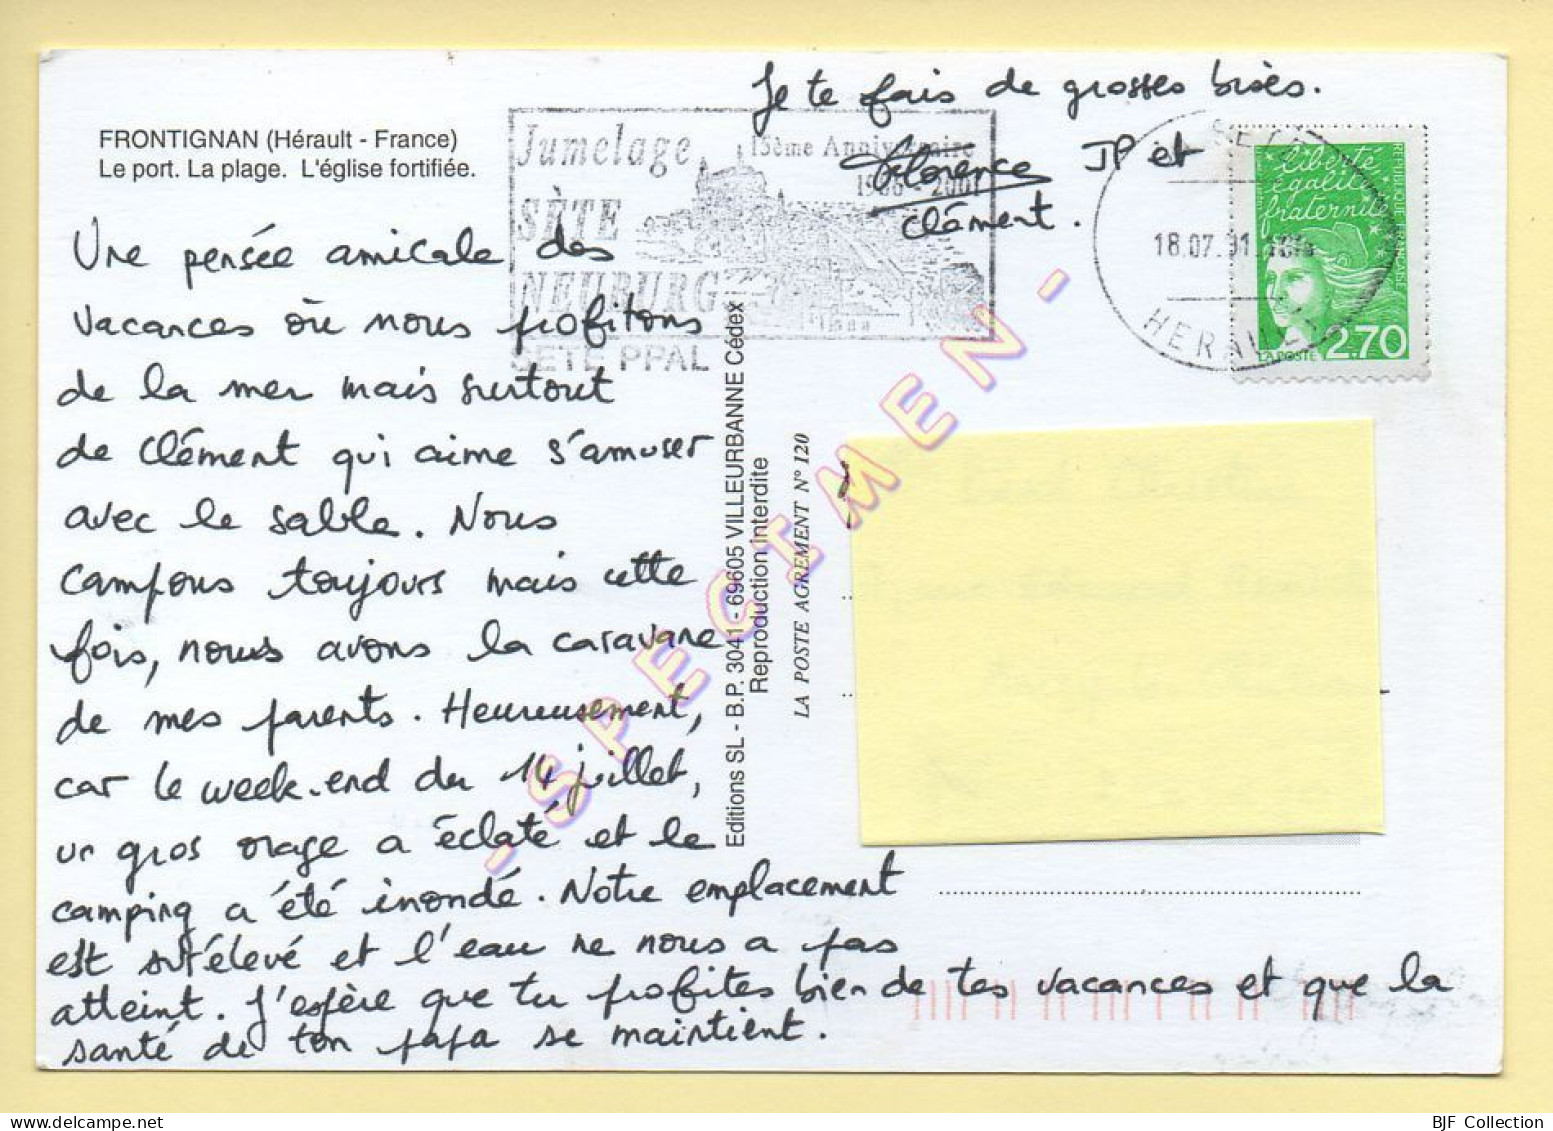 Je te fais de grosses bises.
Florence JP et
clément.
FRONTIGNAN (Hérault - France)
Le port. La plage. L'église fortifiée.
Jumelage
SÈTE
NEUBURG
15ème Anniversaire
1986 - 2001
SETE PPAL
SETE
18.07.01
HERAULT
liberté
égalité
fraternité
REPUBLIQUE FRANÇAISE
LA POSTE 2.70
Une pensée amicale des
vacances où nous profitons
de la mer mais surtout
de Clément qui aime s'amuser
avec le sable. Nous
campons toujours mais cette
fois, nous avons la caravane
de mes parents. Heureusement,
car le week-end du 14 juillet,
un gros orage a éclaté et le
camping a été inondé. Notre emplacement
est surélevé et l'eau ne nous a pas
atteint. J'espère que tu profites bien de tes vacances et que la
santé de ton papa se maintient.
Editions SL - B.P. 3041 - 69605 VILLEURBANNE Cédex
Reproduction interdite
LA POSTE AGREMENT N° 120
- SPECIMEN -
BJF Collection